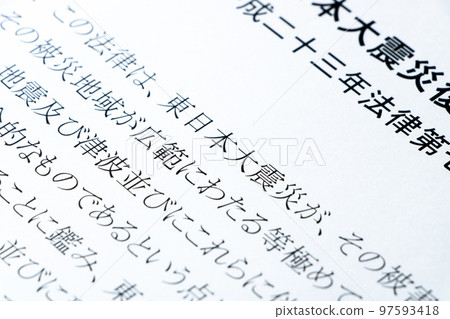 本大震災復
成二十三年法律第
この法律は、東日本大震災が、その被害
その被災地域が広範にわたる等極めて
地震及び津波並びにこれらに
的なものであるという点
ことに鑑み、東
並びに
PIXTA
pixta.jp - 97593418